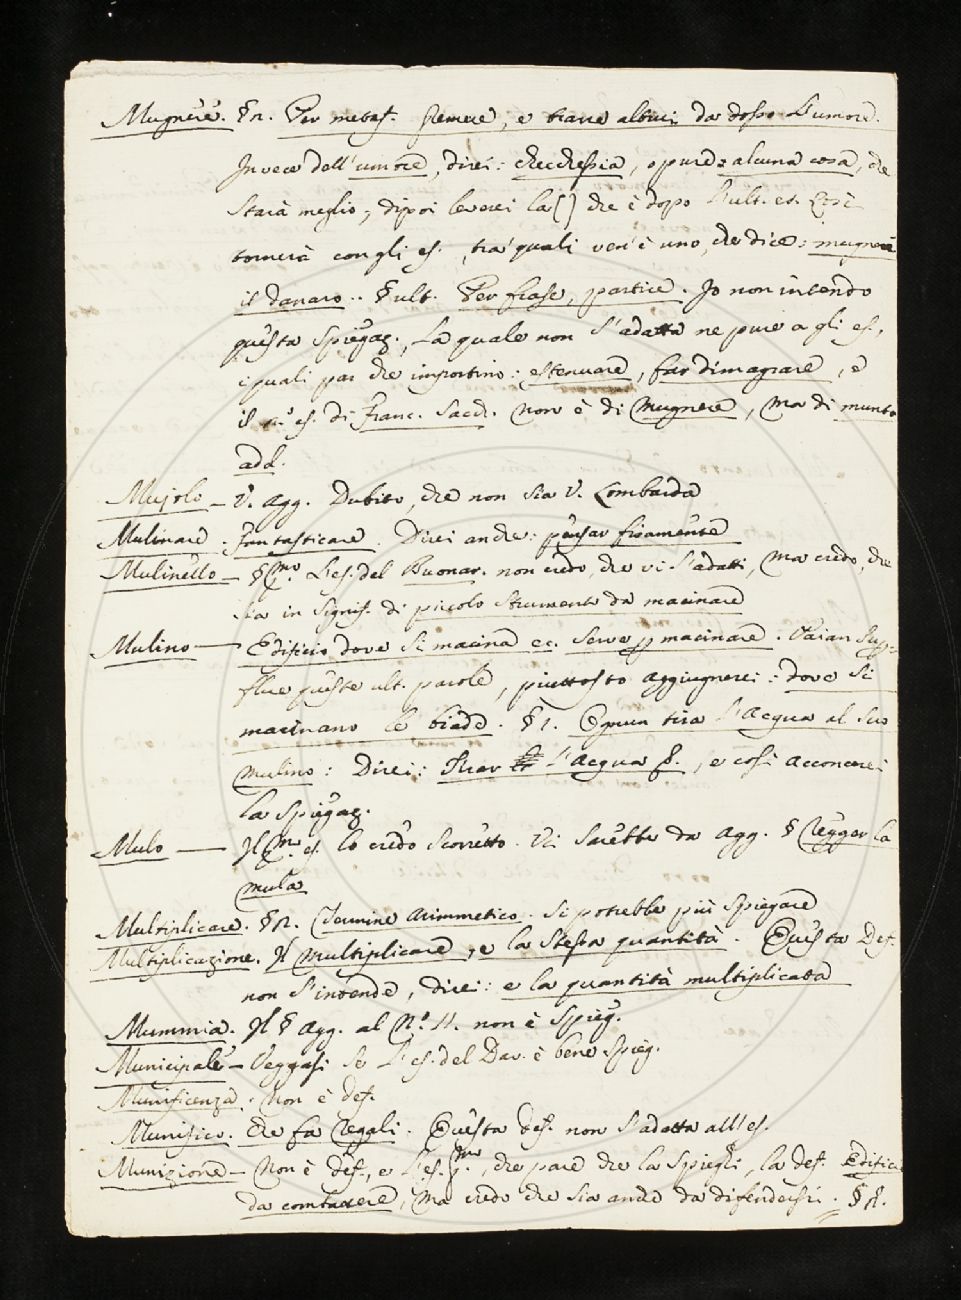 Mugnere. § n. Per metaf. premere, e trarre altrui da dosso l'umore.
Invece dell'umore, direi: checchessia, oppure alcuna cosa, che
starà meglio, dipoi leverei la () che è dopo l'ult. es. Così
tornerà con gli es., tra' quali ven'è uno, che dice: mugnere
il danaro.. § ult. Per frase, partice. Io non intendo
questa spiegaz., la quale non s'adatta ne pure a gli es.,
i quali par che importino: estenuare, far dimagrare, e
il es. di Franc. Sacch. non è di Mugnere, ma di munto
add.
Mujolo — V. Agg. Dubito, che non sia V. Lombarda
Mulinare. Fantasticare. Direi anche: pensar fisamente
Mulinello — § pmo. L'es. del Buonar. non credo, che vi s'adatti, ma credo, che
sia in signif. di piccolo strumento da macinare
Mulino — Edificio dove si macina ec. serve p macinare. Paian sup=
flue queste ult. parole, piuttosto aggiugnerei: dove si
macinano le biade. § 1. Ognun tira l'Acqua al suo
mulino: Direi: Tirar l'Acqua &., e così acconcerei
la spiegaz.
Mulo — Il pmo. es. lo credo scorretto. Vi sarebbe da agg. § Regger la
mula
Multiplicare. § n. Termine Arimmetico. si potrebbe più spiegare
Multiplicazione. Il multiplicare, e la stessa quantità. Questa Def.
non s'intende, direi: e la quantità multiplicata
Mummia. Il § agg. al N.° 11. non è spieg.
Municipale — Veggasi se l'es. del Dav. è bene spieg.
Munificenza. Non è def.
Munifico. Che fa regali. Questa def. non s'adatta all'es.
Munizione — Non è def., e l'es. pmo., che pare che la spieghi, la def. Edifici
da combattere, ma credo che sia anche da difendersi. §